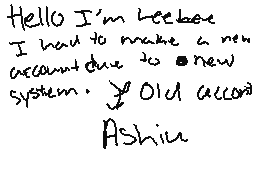 Hello I'm Leebee
I had to make a new
account due to new
system. Old accont
Ashiu